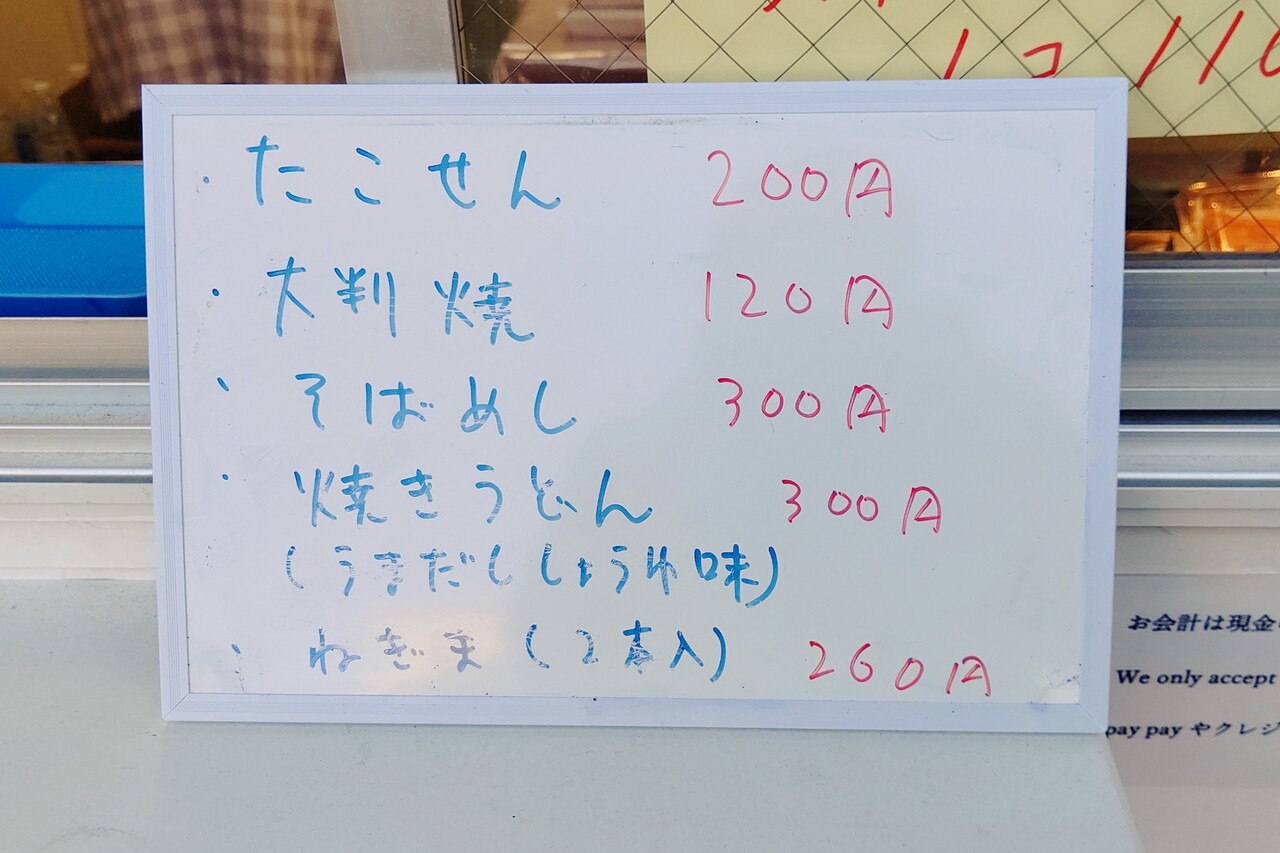 1コ 110
・たこせん 200円
・大判焼 120円
・そばめし 300円
・焼きうどん 300円
(うまだししょうゆ味)
・ねぎま(2本入) 260円
お会計は現金
We only accept
pay pay やクレジ